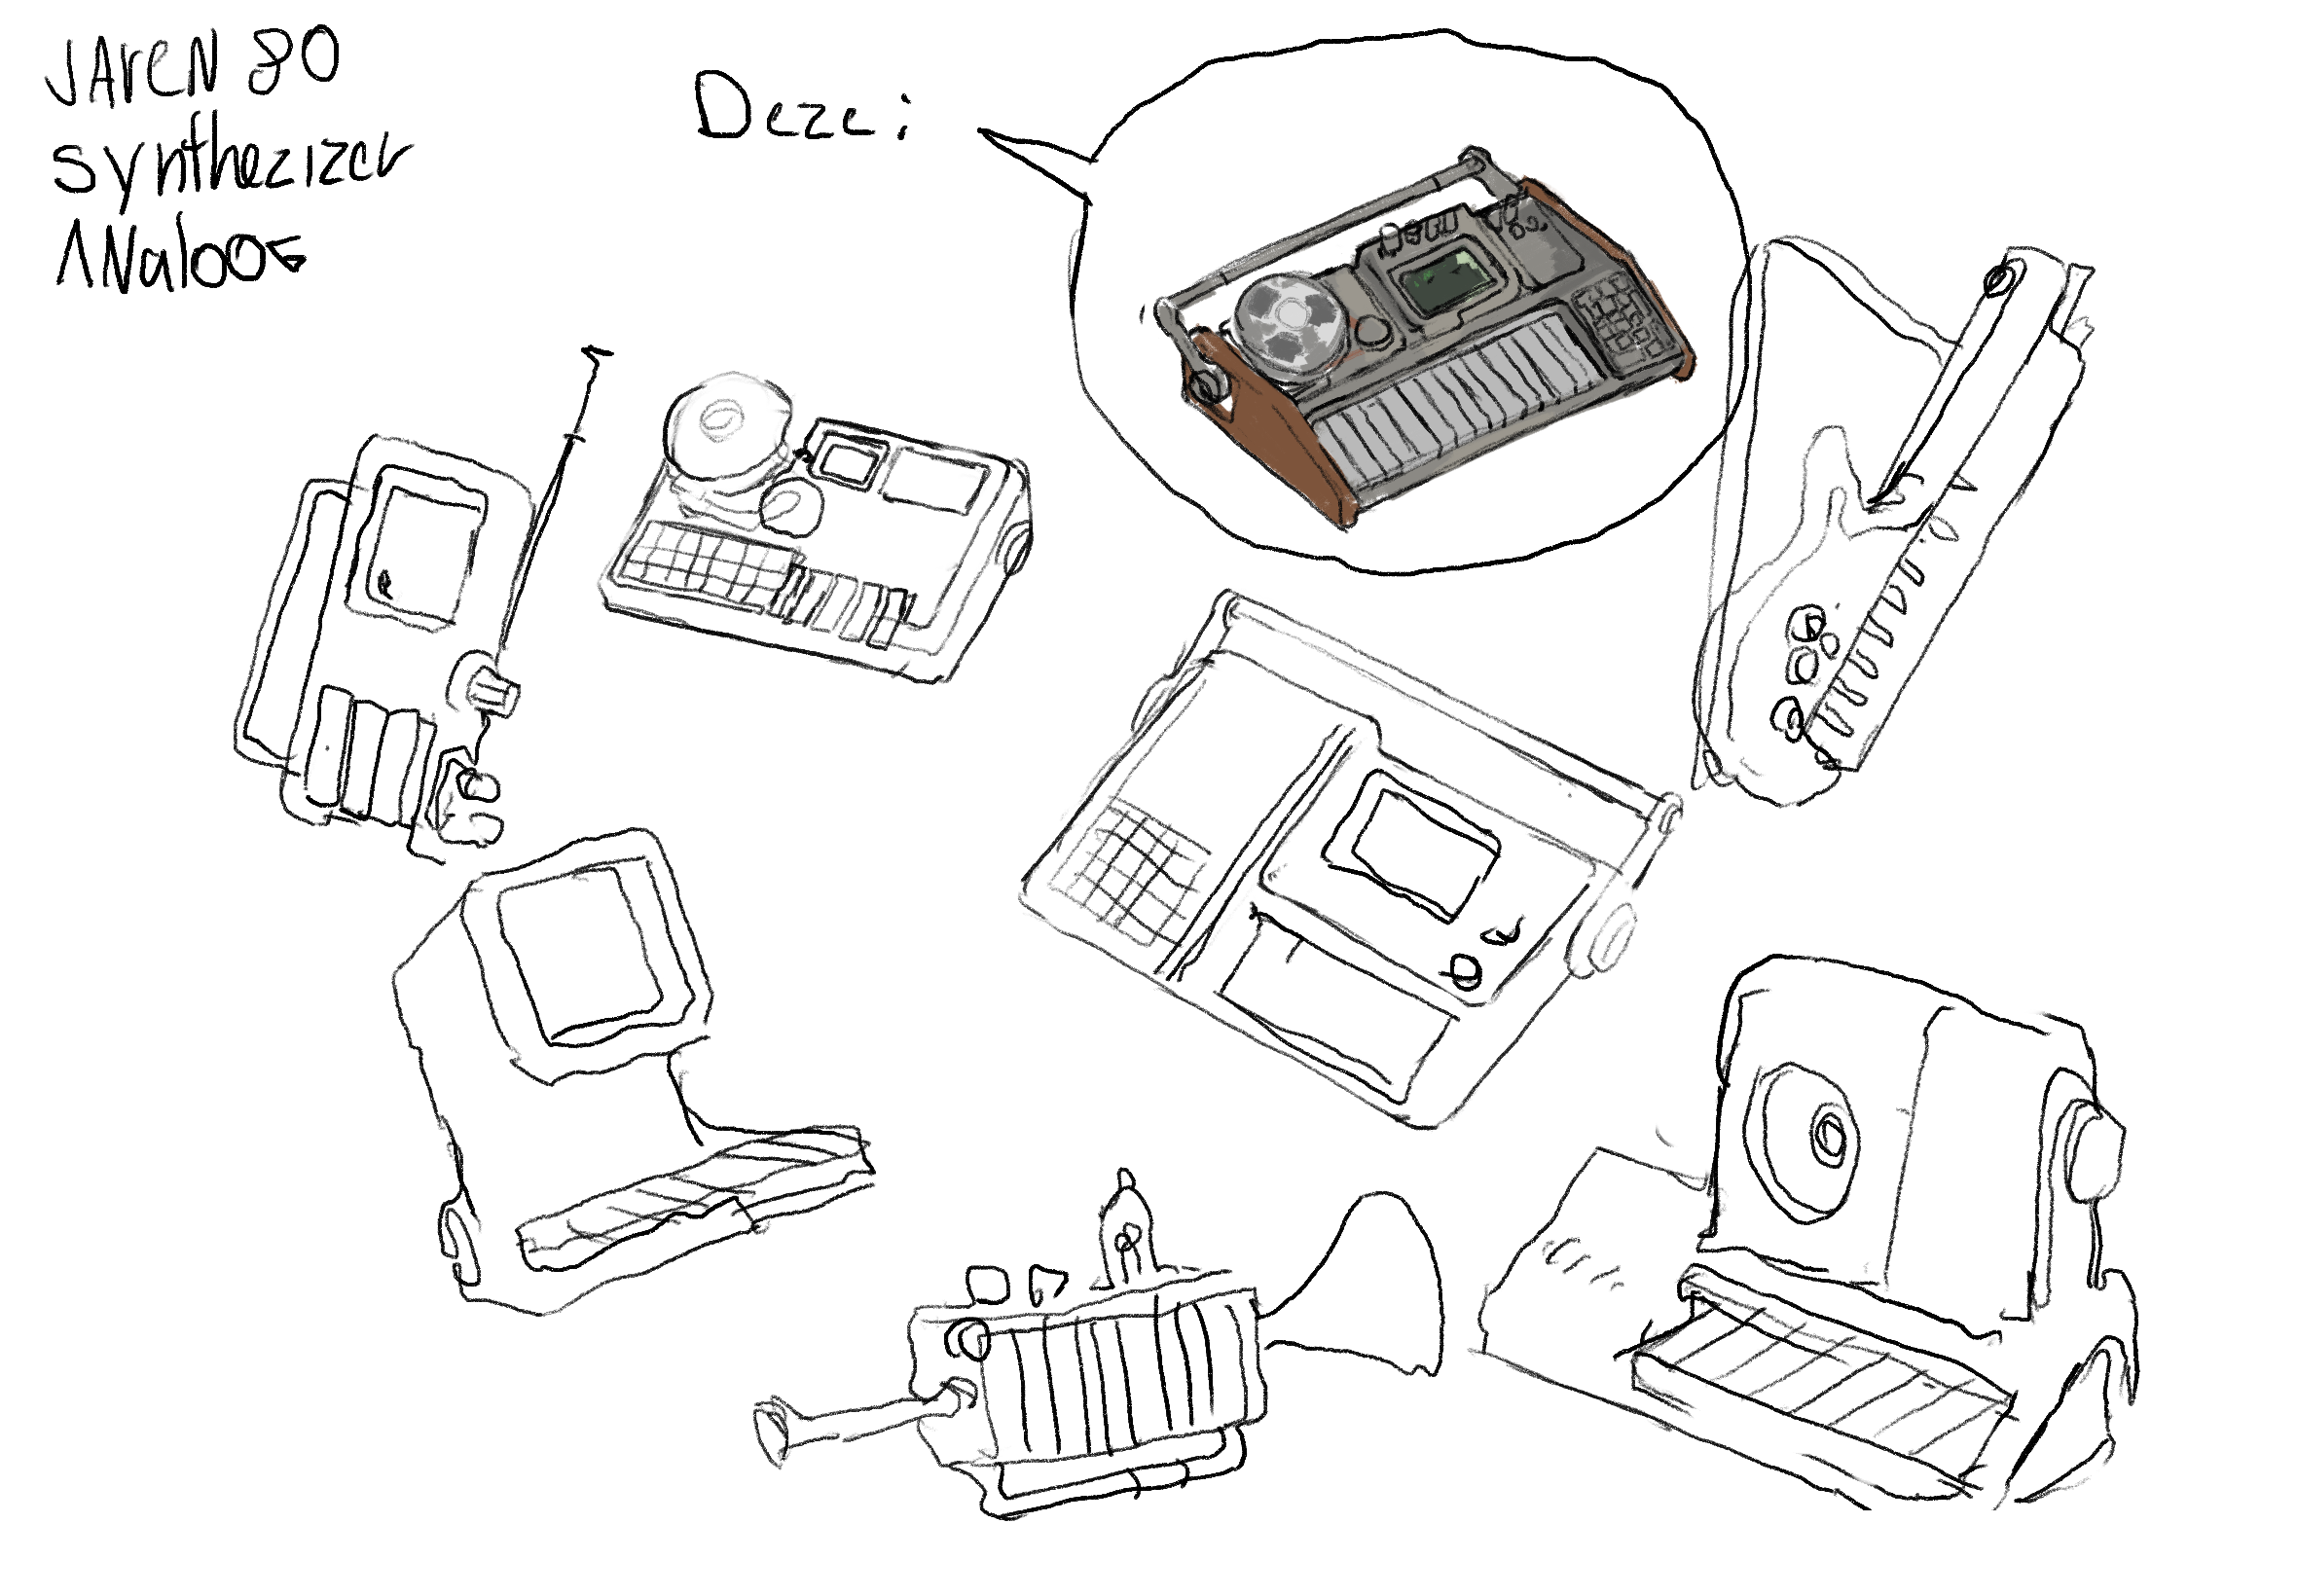 JAreN 80
synthezizer
ANalooG
Deze: